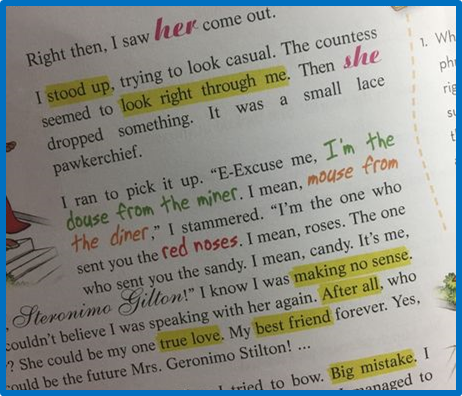 Right then, I saw her come out.
I stood up, trying to look casual. The countess
seemed to look right through me. Then she
dropped something. It was a small lace
pawkerchief.
I ran to pick it up. “E-Excuse me, I'm the
douse from the miner. I mean, mouse from
the diner,” I stammered. “I'm the one who
sent you the red noses. I mean, roses. The one
who sent you the sandy. I mean, candy. It's me,
, Steronimo Gilton!” I know I was making no sense.
couldn't believe I was speaking with her again. After all, who
? She could be my one true love. My best friend forever. Yes,
could be the future Mrs. Geronimo Stilton! ...
I tried to bow. Big mistake. I
managed to
1. Wh
ph
rig